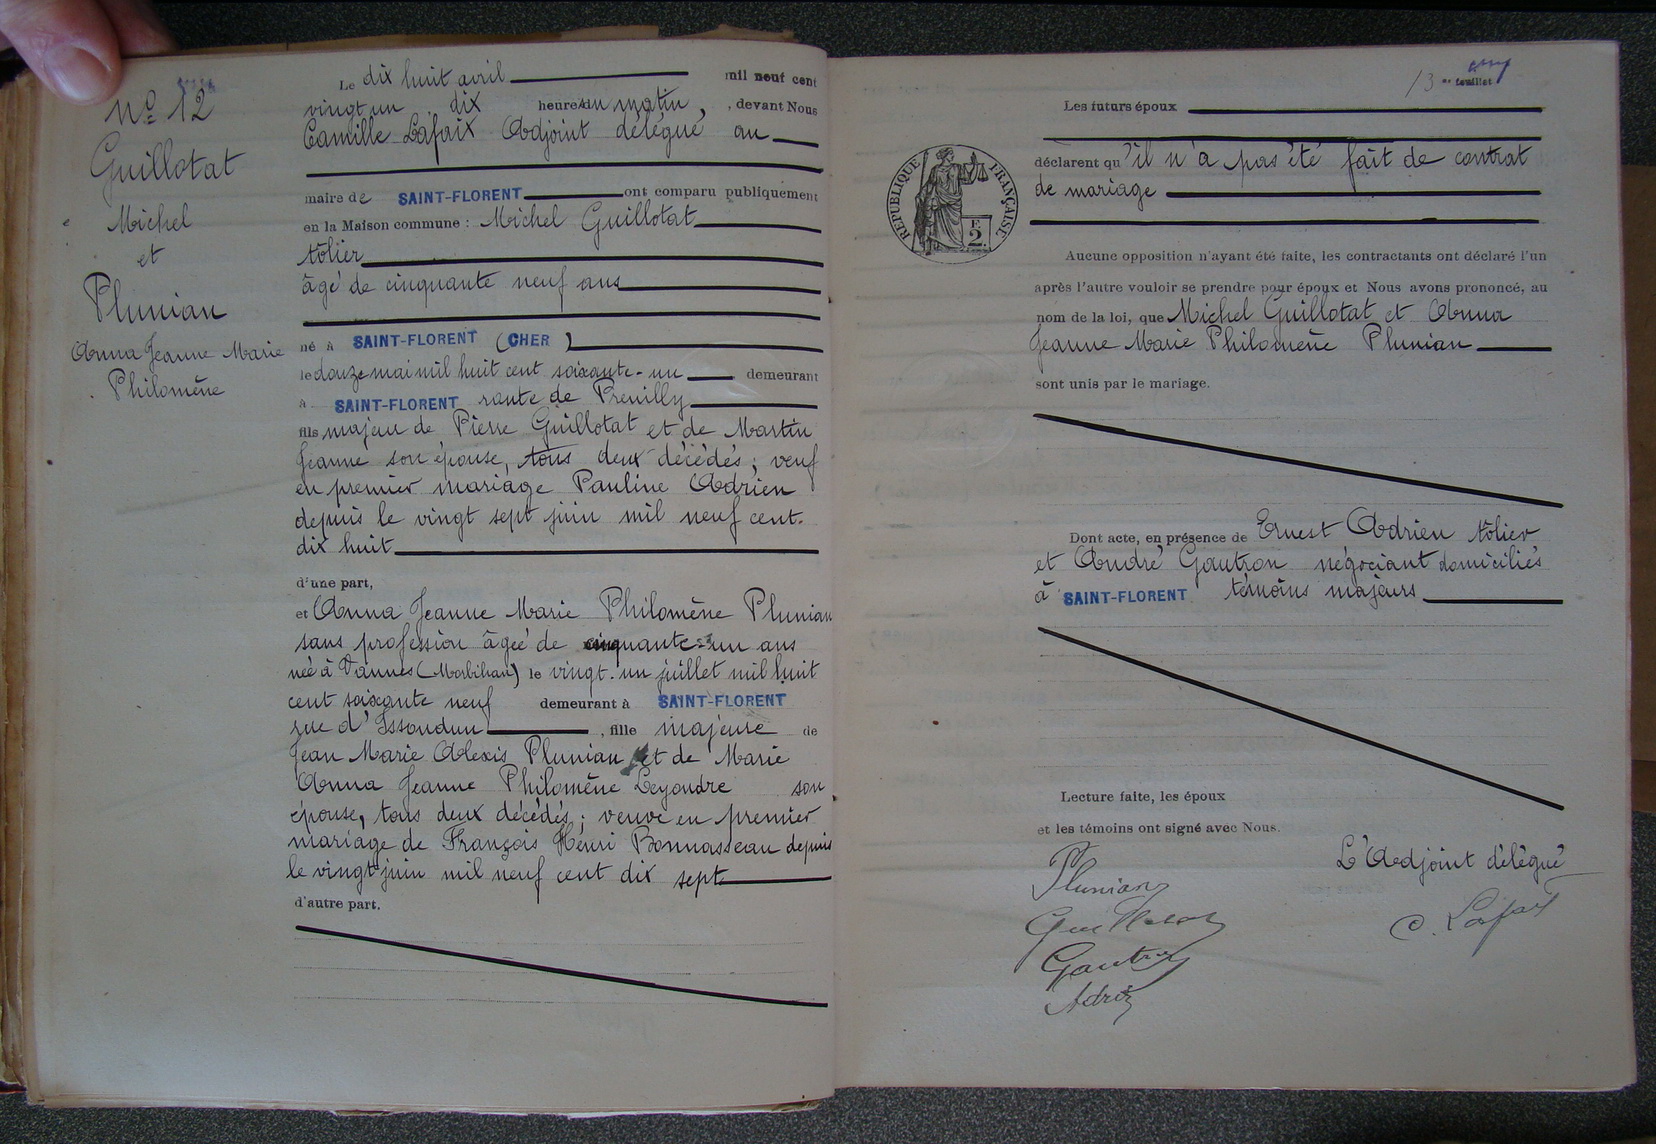 Nº 12
Guillotat
Michel
et
Plunian
Anna Jeanne Marie
Philomène
Le dix huit avril mil neuf cent
vingt un dix heures du matin, devant Nous
Camille Lafaix Adjoint délégué au
maire de SAINT-FLORENT ont comparu publiquement
en la Maison commune : Michel Guillotat
tôlier
âgé de cinquante neuf ans
né à SAINT-FLORENT (CHER)
le douze mai mil huit cent soixante-un demeurant
à SAINT-FLORENT route de Preuilly
fils majeur de Pierre Guillotat et de Martin
Jeanne son épouse, tous deux décédés ; veuf
en premier mariage Pauline Adrien
depuis le vingt sept juin mil neuf cent
dix huit
d'une part,
et Anna Jeanne Marie Philomène Plunian
sans profession âgée de cinquante-un ans
née à Vannes (Morbihan) le vingt-un juillet mil huit
cent soixante neuf demeurant à SAINT-FLORENT
rue d'Issoudun, fille majeure de
Jean Marie Alexis Plunian et de Marie
Anna Jeanne Philomène Leyondre son
épouse, tous deux décédés ; veuve en premier
mariage de François Henri Bonnasseau depuis
le vingt juin mil neuf cent dix sept
d'autre part.
13 me feuillet
Les futurs époux
déclarent qu'il n'a pas été fait de contrat
de mariage
RÉPUBLIQUE FRANÇAISE
2 F.
Aucune opposition n'ayant été faite, les contractants ont déclaré l'un
après l'autre vouloir se prendre pour époux et Nous avons prononcé, au
nom de la loi, que Michel Guillotat et Anna
Jeanne Marie Philomène Plunian
sont unis par le mariage.
Dont acte, en présence de Ernest Adrien tôlier
et André Gautron négociant domiciliés
à SAINT-FLORENT témoins majeurs
Lecture faite, les époux
et les témoins ont signé avec Nous.
Plunian
Guillotat
Gautron
Adrien
L'Adjoint délégué
C. Lafaix